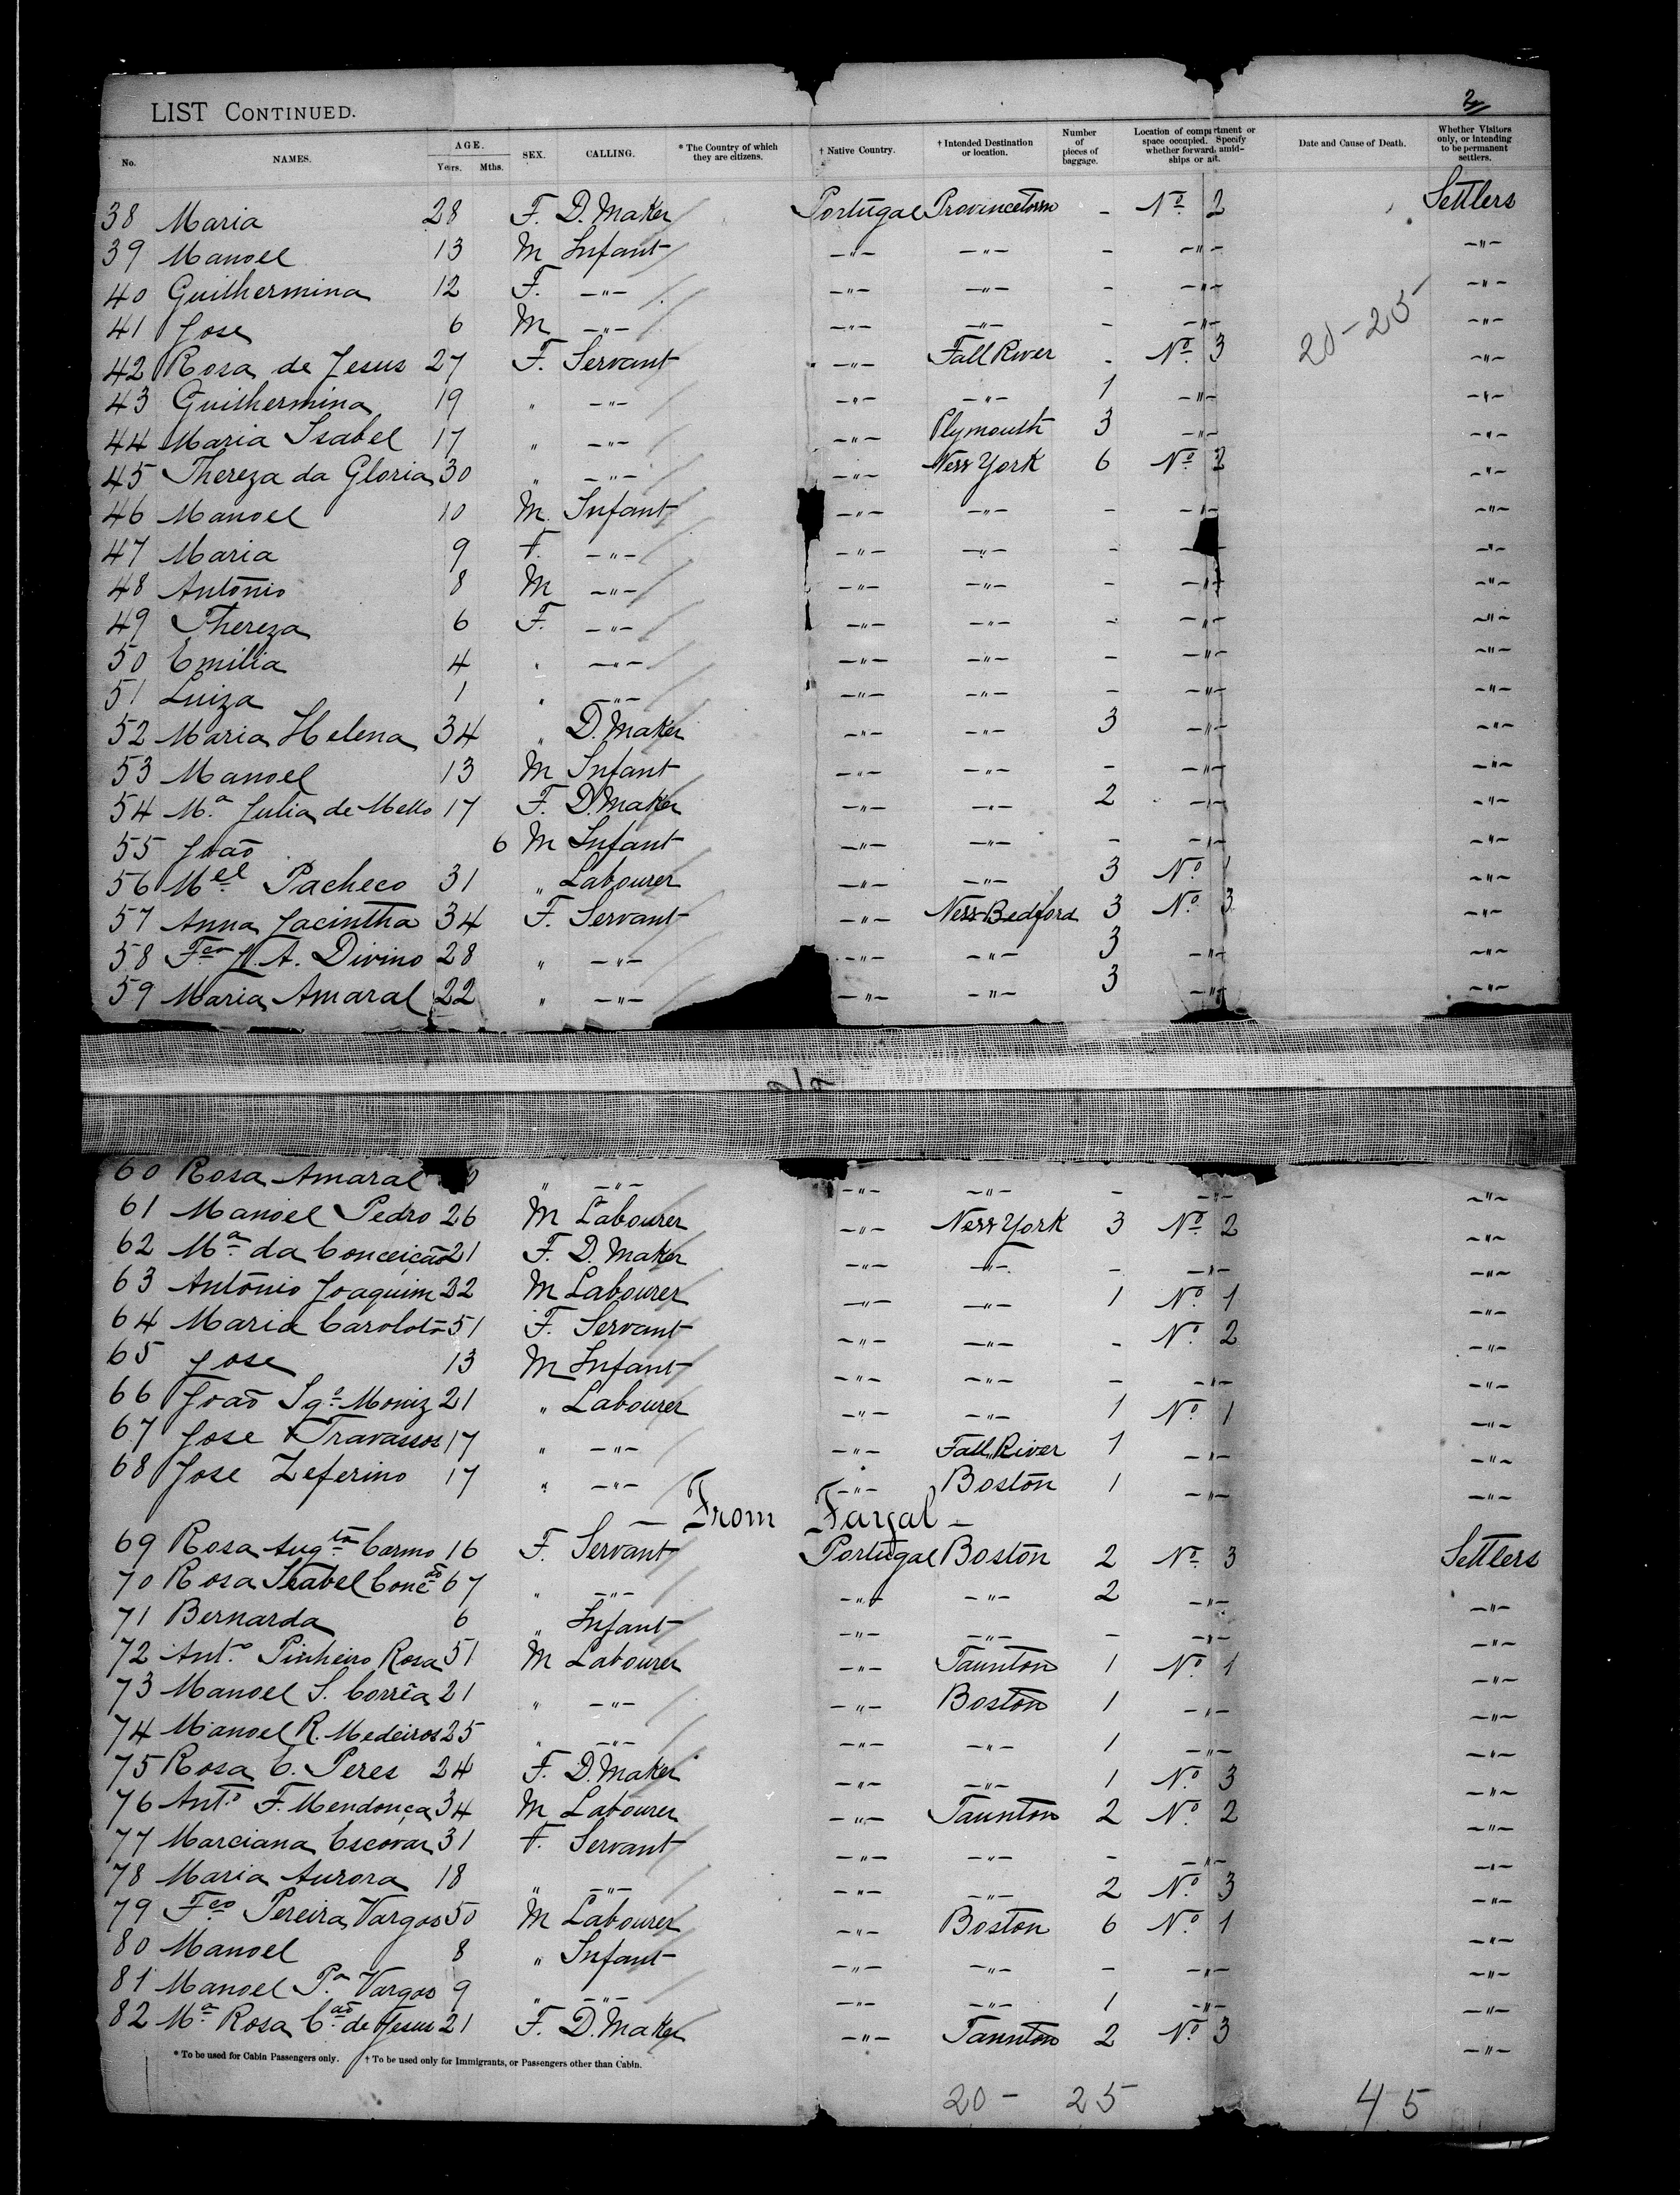 2
LIST CONTINUED.
No. NAMES. AGE. Years. Mths. SEX. CALLING. * The Country of which they are citizens. † Native Country. † Intended Destination or location. Number of pieces of baggage. Location of compartment or space occupied. Specify whether forward, amidships or aft. Date and Cause of Death. Whether Visitors only, or intending to be permanent settlers.
38 Maria 28 F. D. Maker Portugal Provincetown - Nº 2 Settlers
39 Manoel 13 M Infant -"- -"- - -"- -"-
40 Guilhermina 12 F. -"- -"- -"- - -"- -"-
41 Jose 6 M -"- -"- -"- - -"- -"-
20-25
42 Rosa de Jesus 27 F. Servant -"- Fall River - Nº 3 -"-
43 Guilhermina 19 " -"- -"- -"- 1 -"- -"-
44 Maria Isabel 17 " -"- -"- Plymouth 3 -"- -"-
45 Thereza da Gloria 30 " -"- -"- New York 6 Nº 2 -"-
46 Manoel 10 M. Infant -"- -"- - -"- -"-
47 Maria 9 F. -"- -"- -"- - - -"-
48 Antonio 8 M -"- -"- -"- - -"- -"-
49 Thereza 6 F. -"- -"- -"- - -"- -"-
50 Emilia 4 " -"- -"- -"- - -"- -"-
51 Luiza 1 " -"- -"- -"- - -"- -"-
52 Maria Helena 34 " D. Maker -"- -"- 3 -"- -"-
53 Manoel 13 M Infant -"- -"- - -"- -"-
54 M.ª Julia de Mello 17 F. D. Maker -"- -"- 2 -"- -"-
55 João 6 M Infant -"- -"- - -"- -"-
56 Mel Pacheco 31 " Labourer -"- -"- 3 Nº 1 -"-
57 Anna Jacintha 34 F. Servant -"- New Bedford 3 Nº 3 -"-
58 Fca A. Divino 28 " -"- -"- -"- 3 -"- -"-
59 Maria Amaral 22 " -"- -"- -"- 3 -"- -"-
60 Rosa Amaral 0 " -"- -"- -"- - -"- -"-
61 Manoel Pedro 26 M Labourer -"- New York 3 Nº 2 -"-
62 Mª da Conceição 21 F. D. Maker -"- -"- - -"- -"-
63 Antonio Joaquim 32 M Labourer -"- -"- 1 Nº 1 -"-
64 Maria Carolota 51 F. Servant -"- -"- - Nº 2 -"-
65 Jose 13 M Infant -"- -"- - -"- -"-
66 João Igº Moniz 21 " Labourer -"- -"- 1 Nº 1 -"-
67 Jose Travassos 17 " -"- -"- Fall River 1 -"- -"-
68 Jose Zeferino 17 " -"- -"- Boston 1 -"- -"-
- From Fayal -
69 Rosa Augta Carmo 16 F. Servant Portugal Boston 2 Nº 3 Settlers
70 Rosa Isabel Concão 67 " -"- -"- -"- 2 -"- -"-
71 Bernarda 6 " Infant -"- -"- - -"- -"-
72 Ant.º Pinheiro Rosa 51 M Labourer -"- Taunton 1 Nº 1 -"-
73 Manoel S. Corrêa 21 " -"- -"- Boston 1 -"- -"-
74 Manoel R. Medeiros 25 " -"- -"- -"- 1 -"- -"-
75 Rosa C. Peres 24 F. D. Maker -"- -"- 1 Nº 3 -"-
76 Ant.º F. Mendonça 34 M Labourer -"- Taunton 2 Nº 2 -"-
77 Marciana Escovar 31 F. Servant -"- -"- - -"- -"-
78 Maria Aurora 18 " -"- -"- -"- 2 Nº 3 -"-
79 Fco Pereira Vargas 50 M Labourer -"- Boston 6 Nº 1 -"-
80 Manoel 8 " Infant -"- -"- - -"- -"-
81 Manoel Pª Vargas 9 " -"- -"- -"- 1 -"- -"-
82 Mª Rosa Cão de Jesus 21 F. D. Maker -"- Taunton 2 Nº 3 -"-
* To be used for Cabin Passengers only. † To be used only for Immigrants, or Passengers other than Cabin.
20 - 25 45